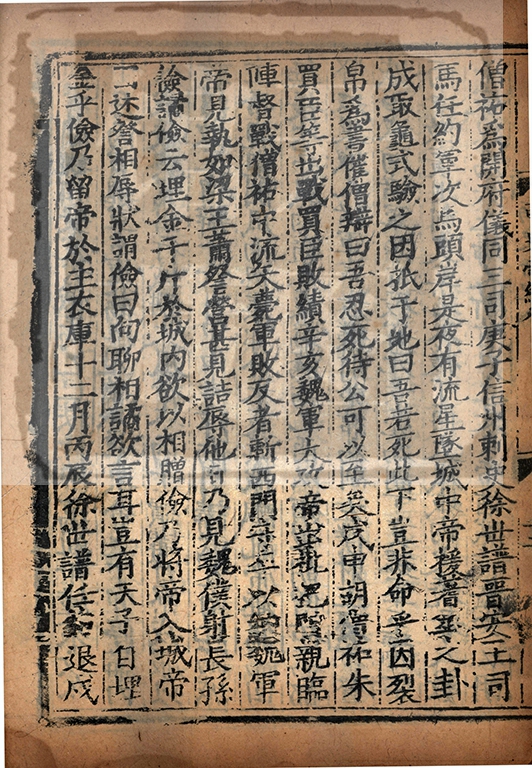 僧祐為開府儀同三司庚子信州刺史徐世譜晋安王司
馬任約軍次馬頭岸是夜有流星墜城中帝援蓍筮之卦
成取龜式驗之因抵于地曰吾若死此下豈非命乎因裂
帛為書催僧辯曰吾忍死待公可以至矣戊申胡僧祐朱
買臣等出戰買臣敗績辛亥魏軍大攻帝出枇杷門親臨
陣督戰僧祐中流矢薨軍敗反者斬西門守卒以納魏軍
帝見執如梁王蕭詧營甚見詰辱他日乃見魏僕射長孫
儉譎儉云埋金千斤於城內欲以相贈儉乃將帝入城帝
因述詧相辱狀謂儉曰向聊相譎欲言耳豈有天子自埋
金乎儉乃留帝於主衣庫十二月丙辰徐世譜任約退戍